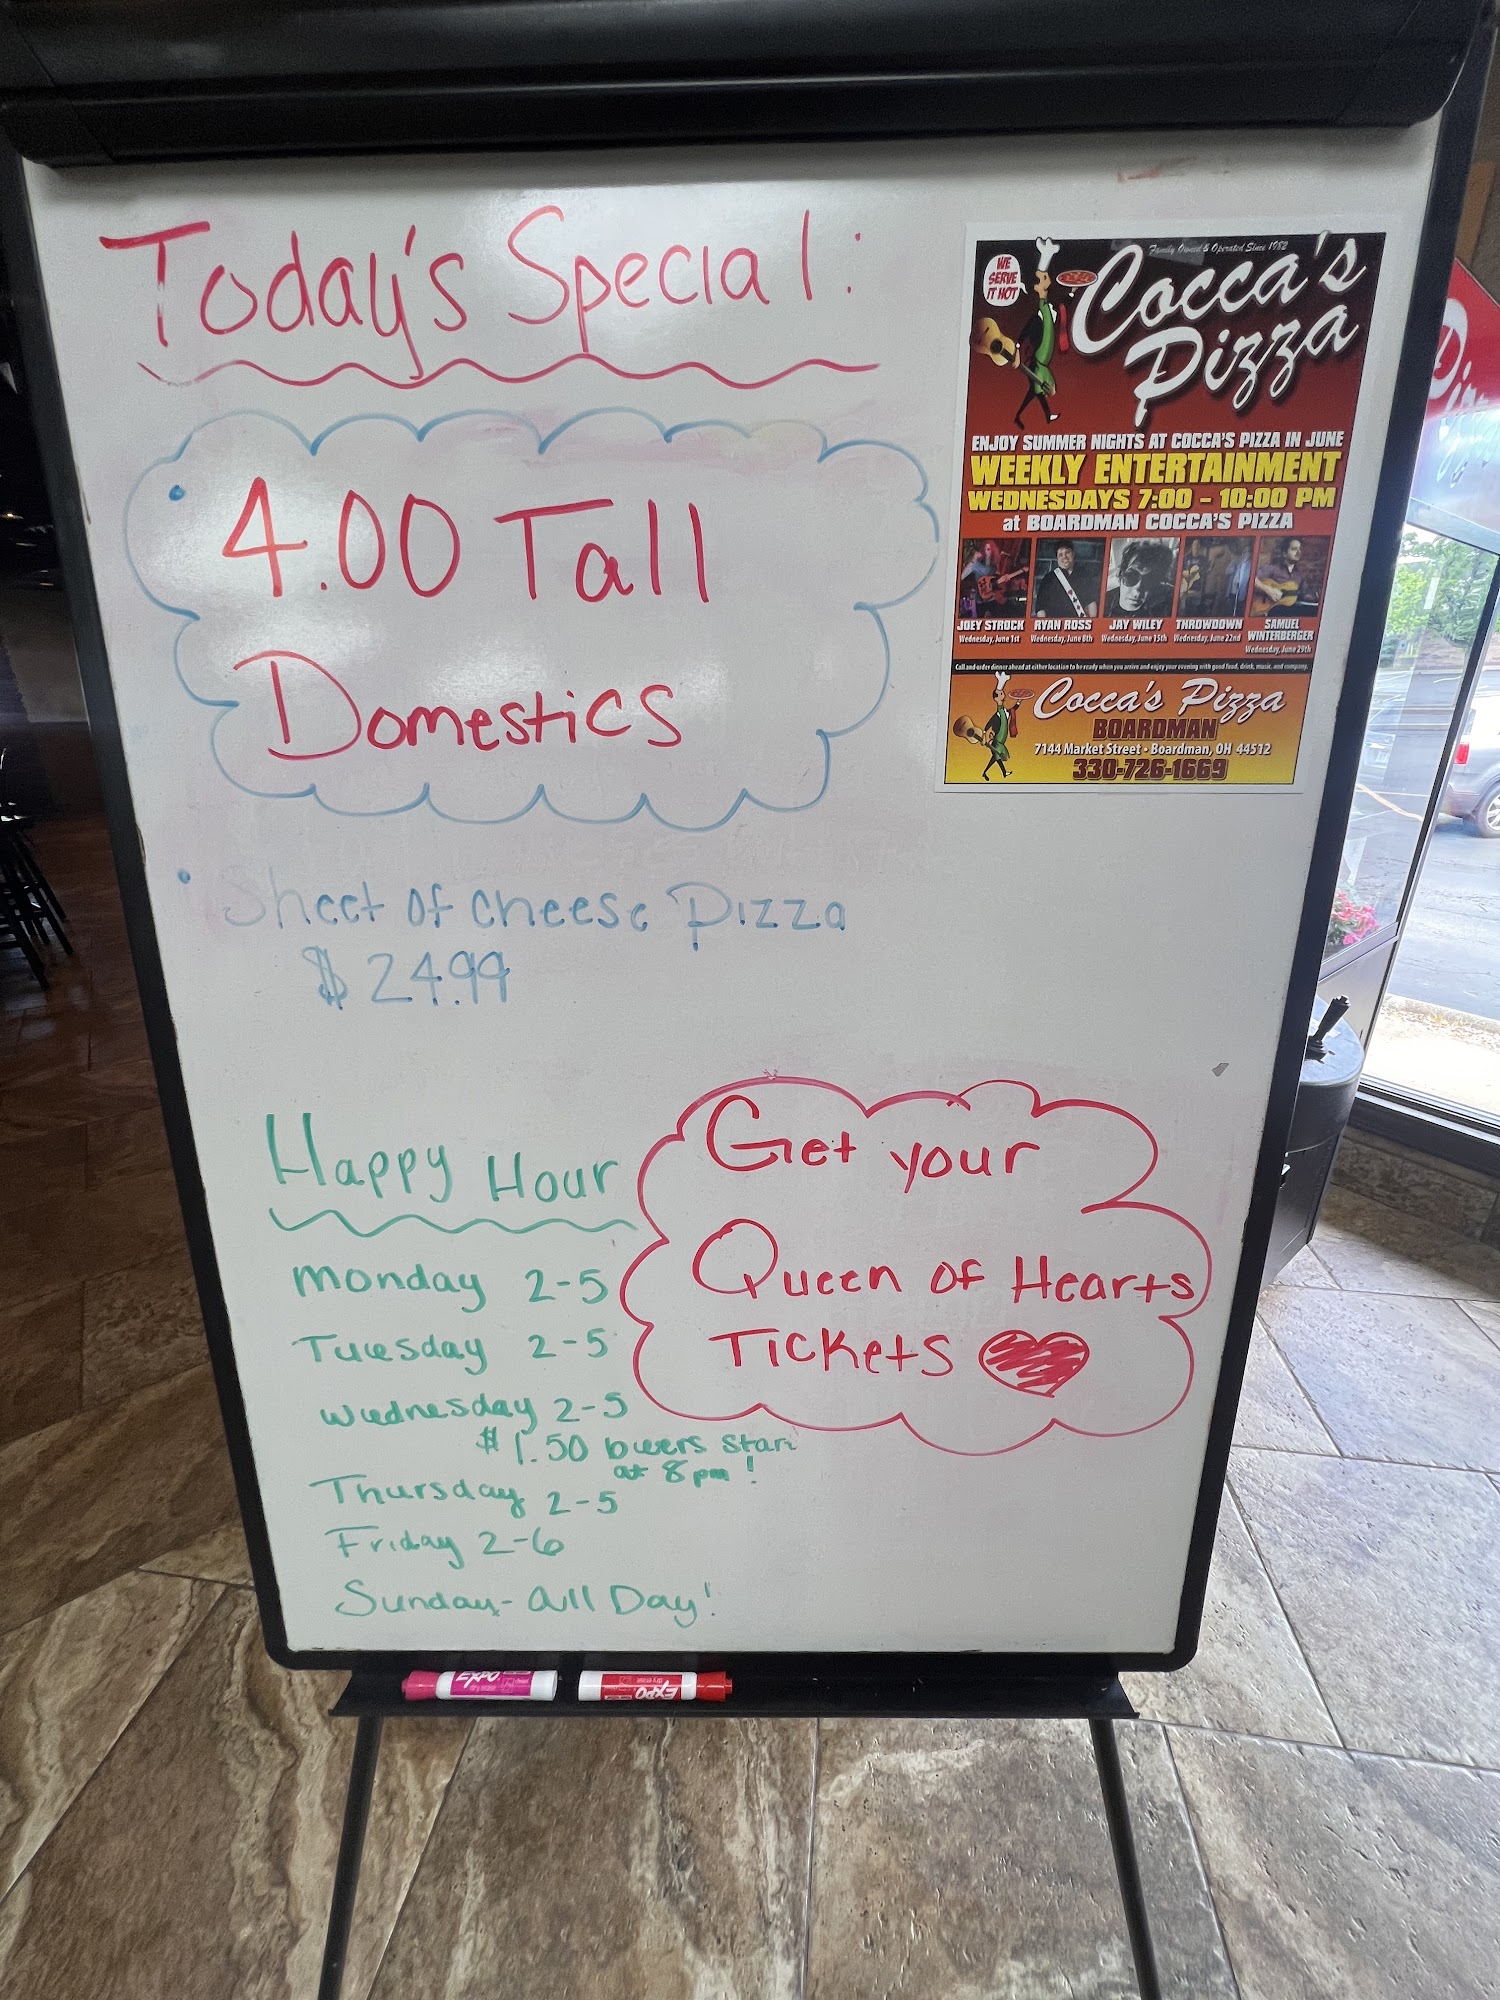 Today's Special:
• 4.00 Tall
Domestics
• Sheet of cheese Pizza
$24.99
Happy Hour
Monday 2-5
Tuesday 2-5
Wednesday 2-5
$1.50 beers start
at 8pm!
Thursday 2-5
Friday 2-6
Sunday - All Day!
Get your
Queen of Hearts
Tickets
Family Owned & Operated Since 1982
WE
SERVE
IT HOT
Cocca's
Pizza
ENJOY SUMMER NIGHTS AT COCCA'S PIZZA IN JUNE
WEEKLY ENTERTAINMENT
WEDNESDAYS 7:00 - 10:00 PM
at BOARDMAN COCCA'S PIZZA
JOEY STROCK
Wednesday, June 1st
RYAN ROSS
Wednesday, June 8th
JAY WILEY
Wednesday, June 15th
THROWDOWN
Wednesday, June 22nd
SAMUEL
WINTERBERGER
Wednesday, June 29th
Call and order dinner ahead at either location to be ready when you arrive and enjoy your evening with good food, drink, music, and company.
Cocca's Pizza
BOARDMAN
7144 Market Street • Boardman, OH 44512
330-726-1669
EXPO
EXPO